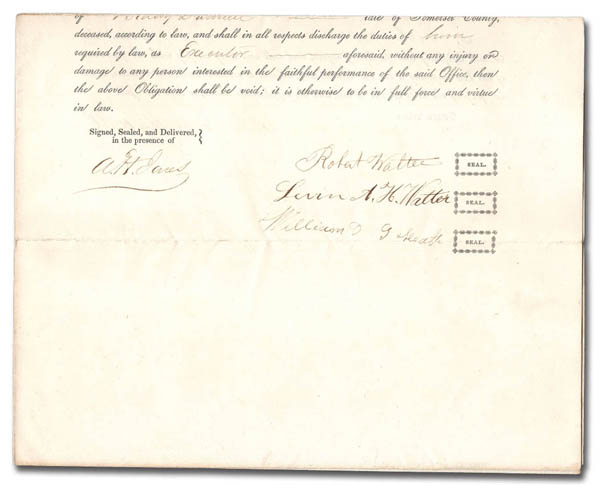 of Henry late of Somerset County,
deceased, according to law, and shall in all respects discharge the duties of him
required by law, as Executor aforesaid, without any injury or
damage to any person interested in the faithful performance of the said Office, then
the above Obligation shall be void; it is otherwise to be in full force and virtue
in law.
Signed, Sealed, and Delivered,
in the presence of
A. H. Jones
Robert Walter SEAL.
Levin A. H. Walter SEAL.
William SEAL.